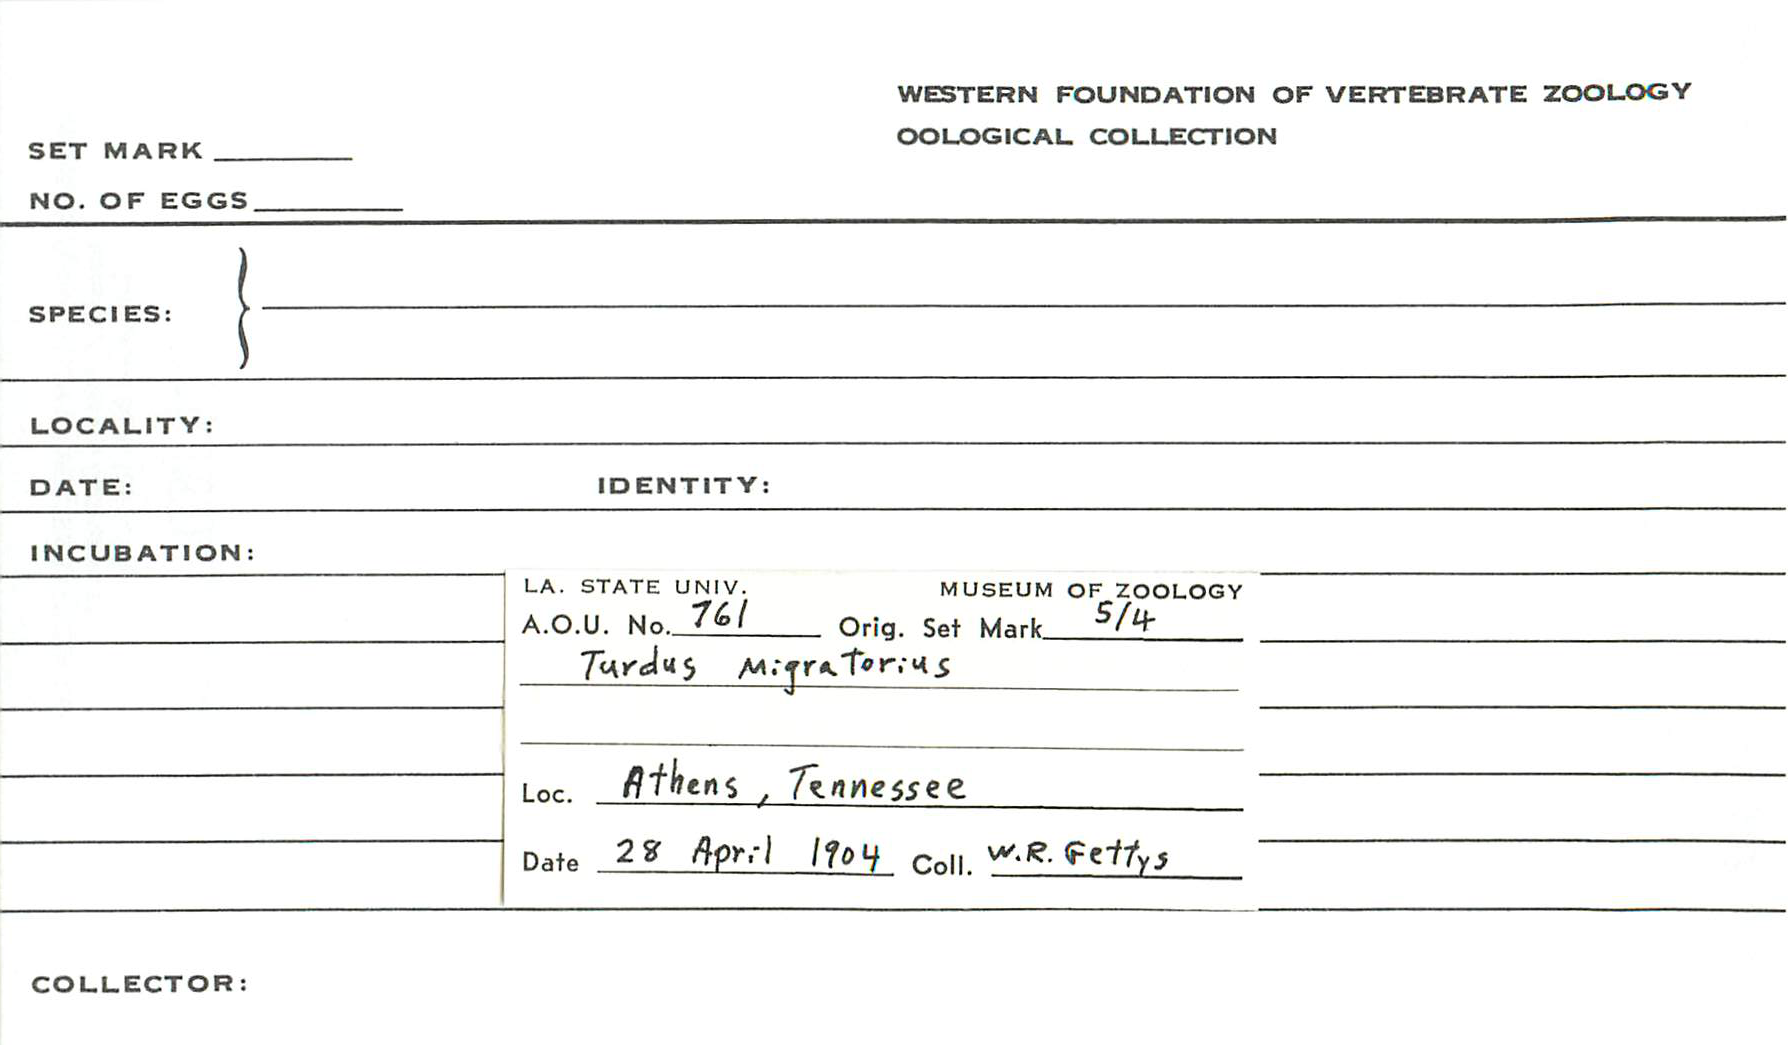 WESTERN FOUNDATION OF VERTEBRATE ZOOLOGY
OOLOGICAL COLLECTION
SET MARK
NO. OF EGGS
SPECIES:
LOCALITY:
DATE: IDENTITY:
INCUBATION:
LA. STATE UNIV. MUSEUM OF ZOOLOGY
A.O.U. No. 761 Orig. Set Mark 5/4
Turdus Migratorius
Loc. Athens, Tennessee
Date 28 April 1904 Coll. W.R. Gettys
COLLECTOR: